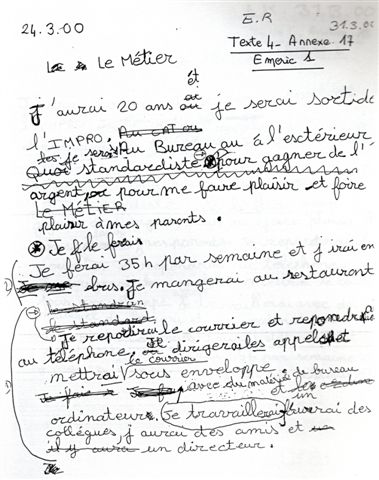 24.3.00 E.R 31.3.00
Texte 4 - Annexe. 17
Le Métier Emeric 1
et
J'aurai 20 ans où je serai sortide
l'IMPRO. Au CAT ou
tes je serai Au Bureau ou à l'esctérieur
Quoi standardiste pour gagner de l'
argent, pour me faire plaisir et foire
LE MÉTIER
plaisir à mes parents.
Je le ferais
Je ferai 35h par semaine et j'irai en
bus. Je mangerai au restaurant
standard
Je repotirai le courrier et repondre
au téléphone, Je dirigerai les appels et
le courrier
mettrai sous enveloppe
Je fais avec du matériel de bureau
et un
ordinateur. Je travaillerai j'aurai des
collégues, j'aurai des amis et
il y aura un directeur.